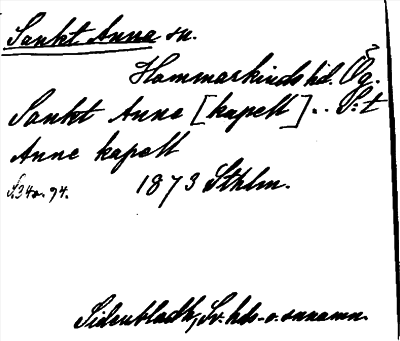 Sankt Anna sn.
Hammarkinds hd. Ög.
Sankt Anne [kapell].. S:t
Anne kapell
1873 Sthlm.
Sidenbladh, Sv. hds- o. snnamn.